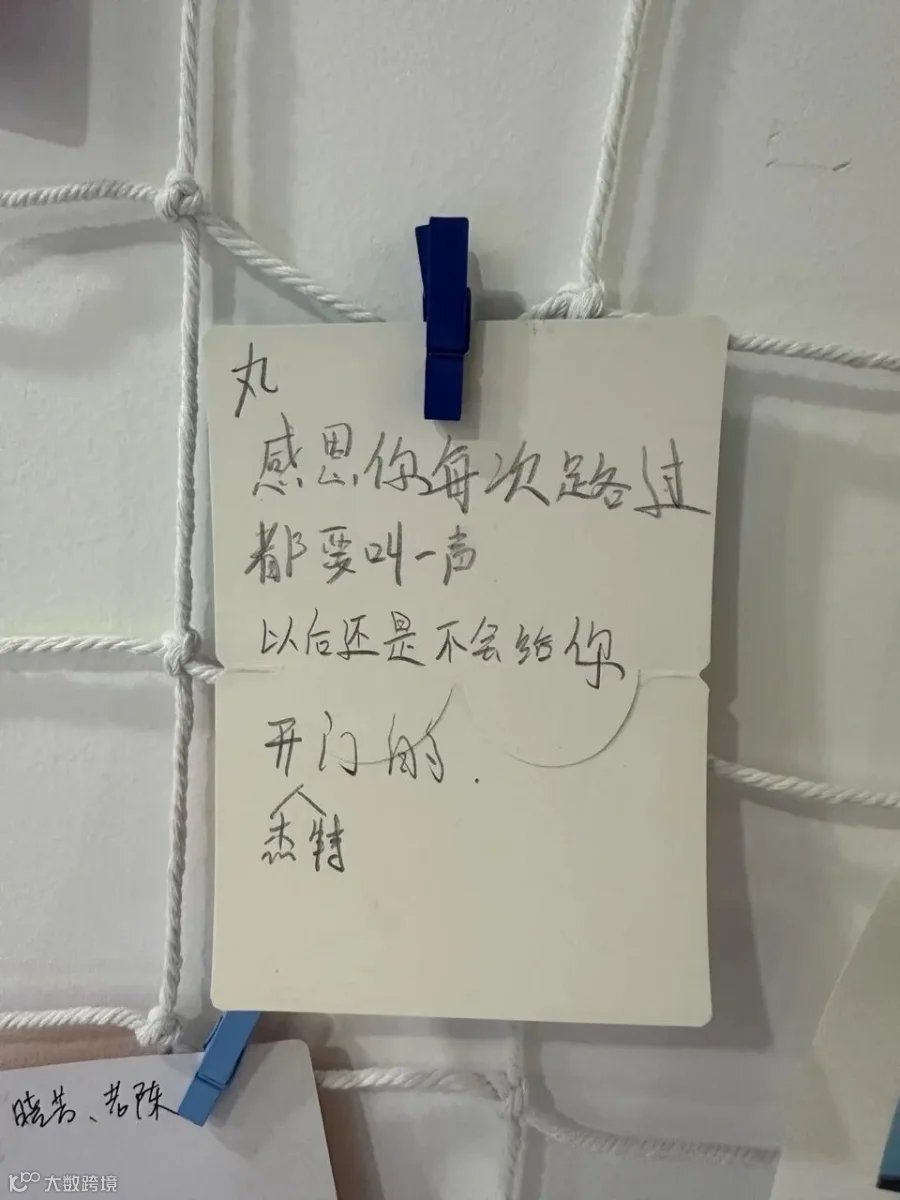 丸
感恩你每次路过
都要叫一声
以后还是不会给你
开门的.
杰特
老陈
大数跨境